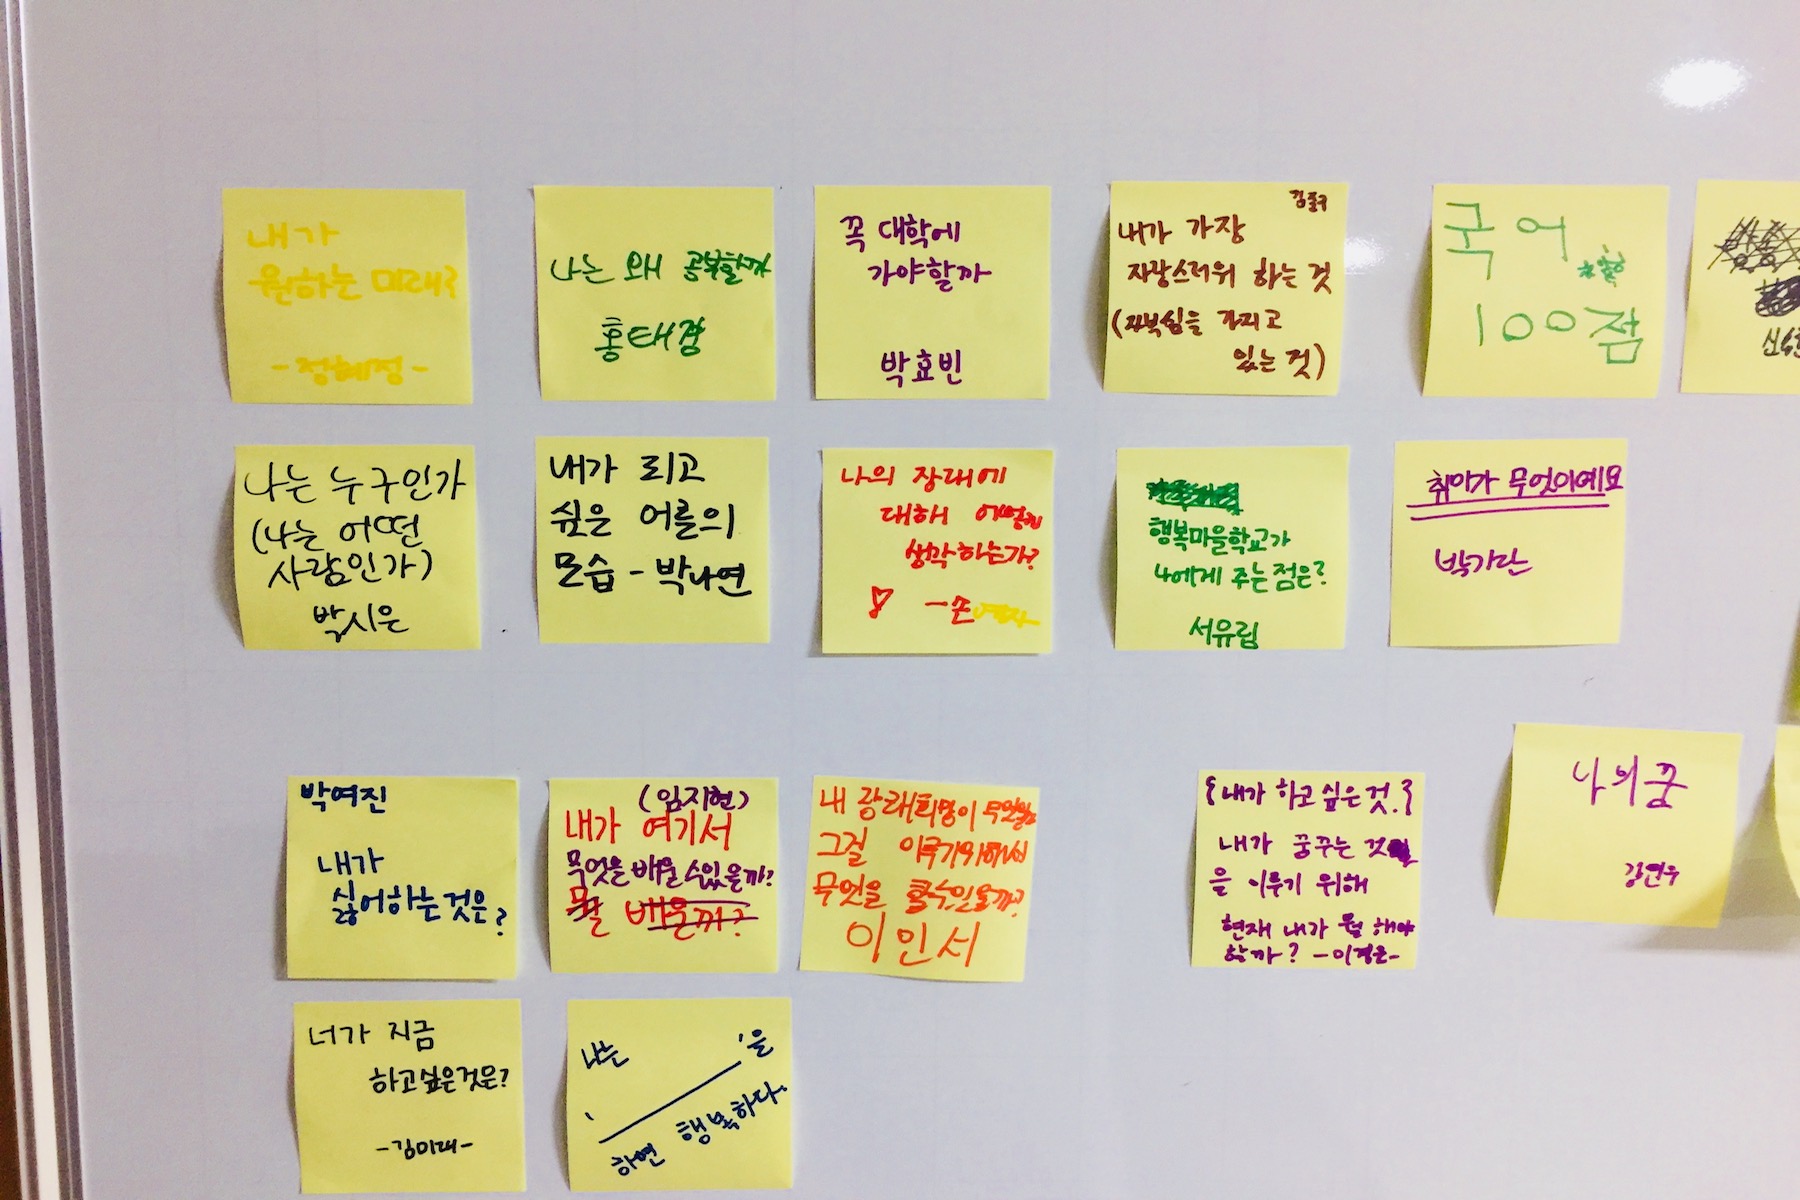 내가
원하는 미래?
-정혜정-
나는 왜 공부할까
홍태경
꼭 대학에
가야할까
박효빈
내가 가장
자랑스러워 하는 것
(자부심을 가지고
있는 것)
국어
100점
나는 누구인가
(나는 어떤
사람인가)
박시은
내가 되고
싶은 어른의
모습 - 박나연
나의 장래에
대해 어떻게
생각하는가?
-손
행복마을학교가
나에게 주는 점은?
서유림
취미가 무엇이예요
박가란
박여진
내가
싫어하는 것은?
(임지현)
내가 여기서
무엇을 배울 수 있을까?
뭘 배울까?
내 장래희망이 무엇이고
그걸 이루기위해서
무엇을 할수있을까?
이인서
{내가 하고 싶은 것.}
내가 꿈꾸는 것
을 이루기 위해
현재 내가 뭘 해야
할까? -이경은-
나의 꿈
강연우
너가 지금
하고싶은것은?
-김미래-
나는
' 을
하면 행복하다.